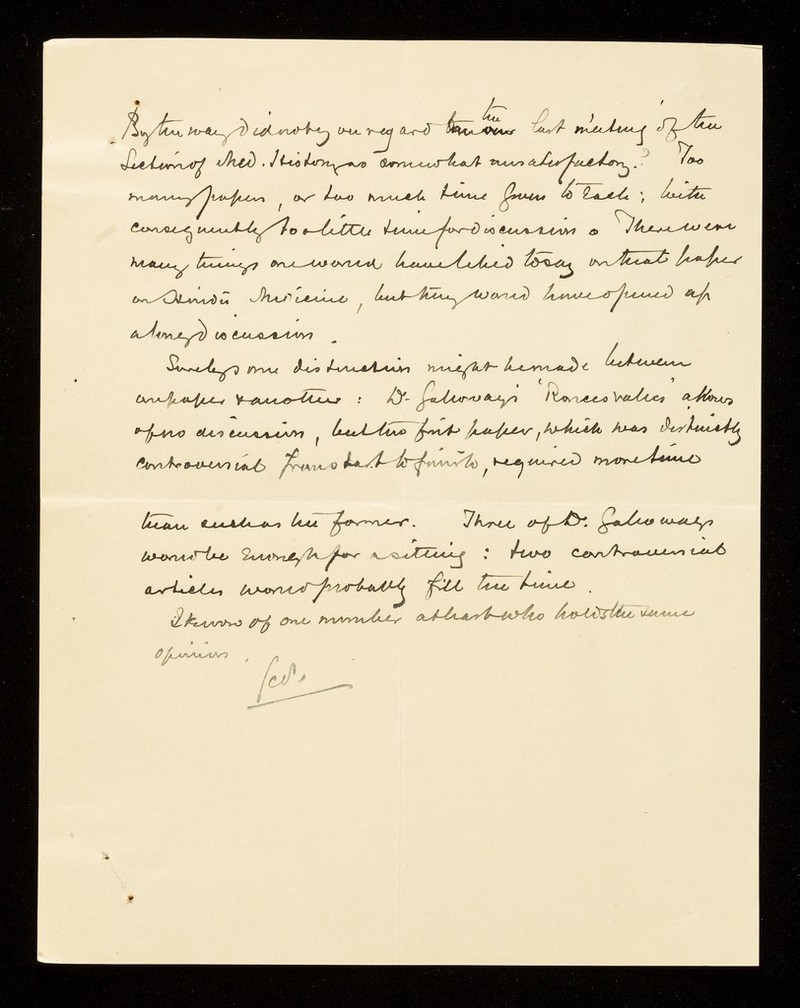 By the way did not you regard the last meeting of the
Section of Med. History as somewhat unsatisfactory? Too
many papers, or too much time given to each; with
consequently too little time for discussion. There were
many things one would have liked to say on that paper
on Hindu Medicine, but they would have opened up
a long discussion.
Surely some distinction might be made between
one paper & another: Dr. Galloway's "Roncesvalles" allows
of no discussion, but the first paper, which was distinctly
controversial from start to finish, required more time
than such as the former. Three of Dr. Galloways
would be enough for a sitting: two controversial
articles would probably fill the time.
I know of one member at least who holds the same
opinion.